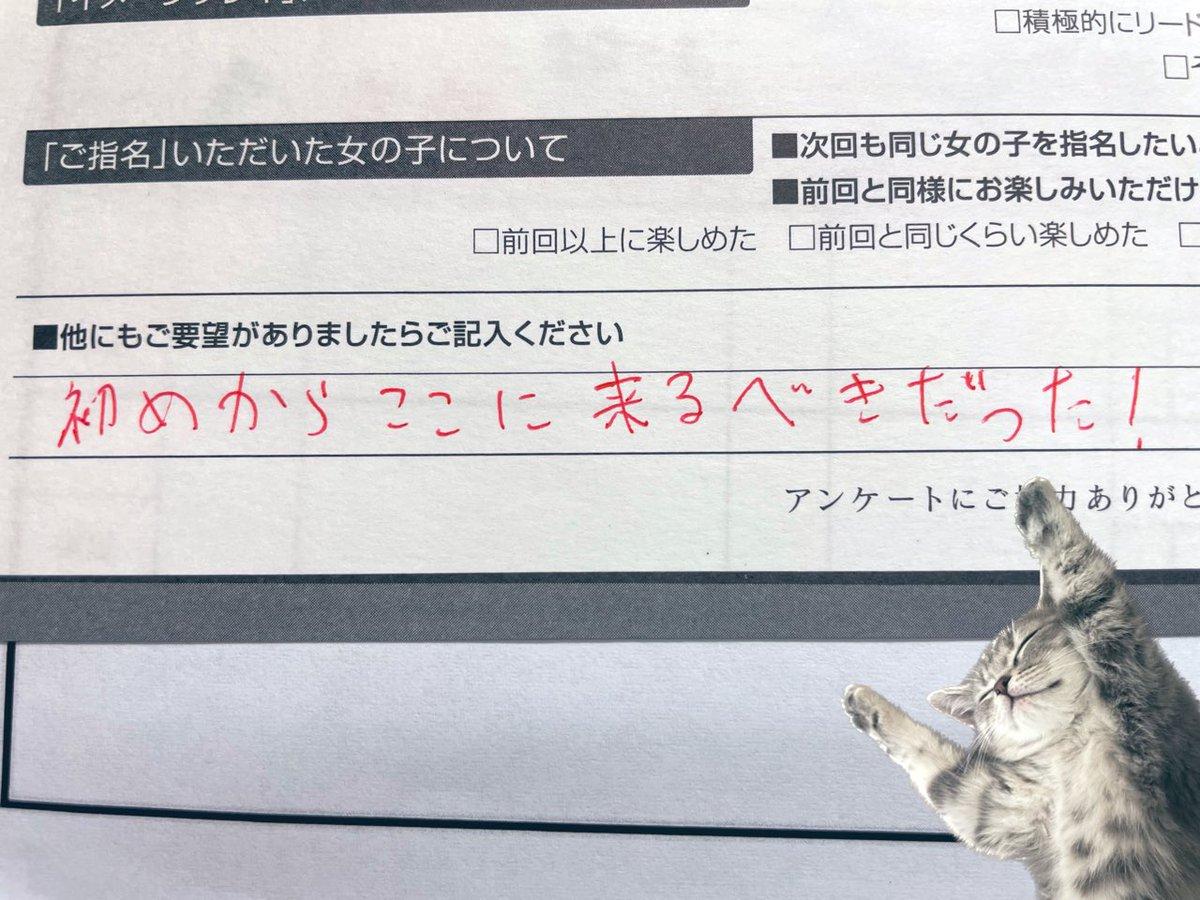 □積極的にリード
「ご指名」いただいた女の子について
■次回も同じ女の子を指名したい
■前回と同様にお楽しみいただけ
□前回以上に楽しめた □前回と同じくらい楽しめた □
■他にもご要望がありましたらご記入ください
初めからここに来るべきだった!
アンケートにご協力ありがと